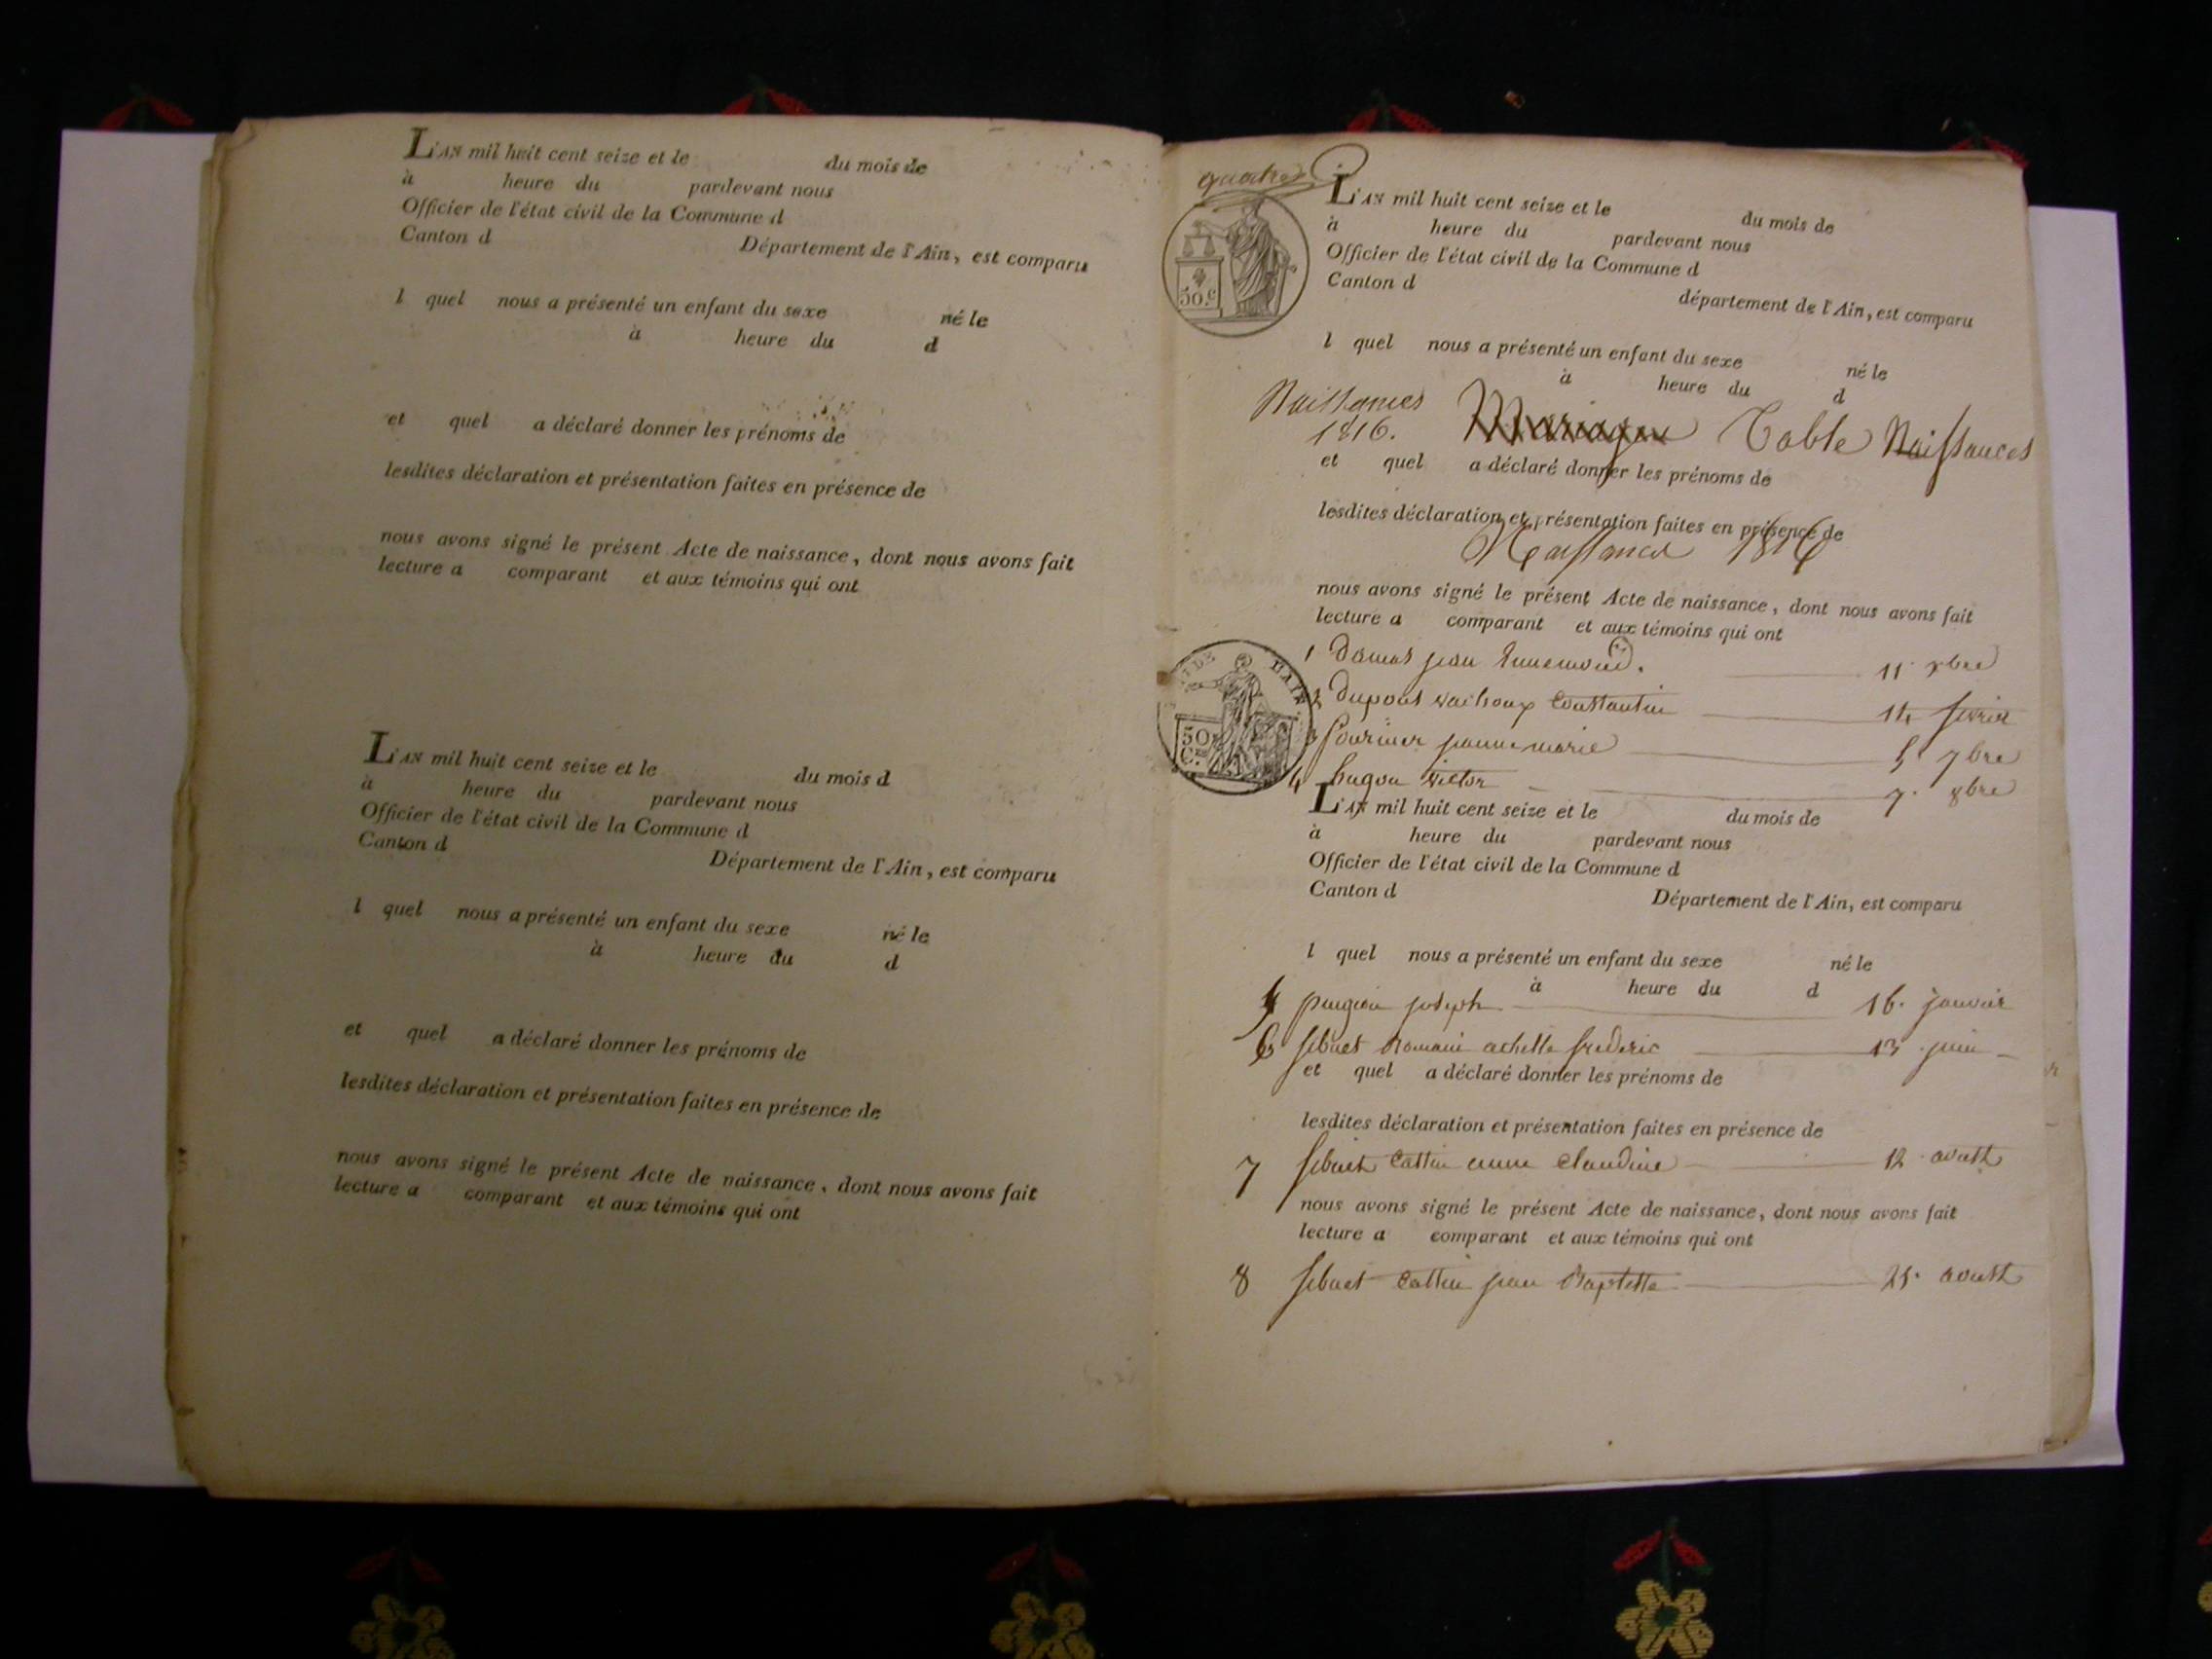 L'AN mil huit cent seize et le du mois de
à heure du pardevant nous
Officier de l'état civil de la Commune d
Canton d Département de l'Ain, est comparu
l quel nous a présenté un enfant du sexe né le
à heure du d
et quel a déclaré donner les prénoms de
lesdites déclaration et présentation faites en présence de
nous avons signé le présent Acte de naissance, dont nous avons fait
lecture a comparant et aux témoins qui ont
L'AN mil huit cent seize et le du mois d
à heure du pardevant nous
Officier de l'état civil de la Commune d
Canton d Département de l'Ain, est comparu
l quel nous a présenté un enfant du sexe né le
à heure du d
et quel a déclaré donner les prénoms de
lesdites déclaration et présentation faites en présence de
nous avons signé le présent Acte de naissance, dont nous avons fait
lecture a comparant et aux témoins qui ont
L'AN mil huit cent seize et le du mois de
à heure du pardevant nous
50.c
Officier de l'état civil de la Commune d
Canton d département de l'Ain, est comparu
l quel nous a présenté un enfant du sexe né le
à heure du d
Naissances Mariages Table Naissances
1816.
et quel a déclaré donner les prénoms de
lesdites déclaration et présentation faites en présence de
Naissances 1816
nous avons signé le présent Acte de naissance, dont nous avons fait
lecture a comparant et aux témoins qui ont
1 jean 11. xbre
2 dupont vachoux Constantin 14 fevrier
50 C.
3 fournier jeanne marie 5 7bre
4 hugon victor 7. 8bre
L'AN mil huit cent seize et le du mois de
à heure du pardevant nous
Officier de l'état civil de la Commune d
Canton d Département de l'Ain, est comparu
l quel nous a présenté un enfant du sexe né le
à heure du d
joseph 16. janvier
6 sibuet Romain achille frederic 13 juin
et quel a déclaré donner les prénoms de
lesdites déclaration et présentation faites en présence de
7 sibuet Cattin anne Claudine 12 aoust
nous avons signé le présent Acte de naissance, dont nous avons fait
lecture a comparant et aux témoins qui ont
8 sibuet Cattin jean Baptiste 25. aoust